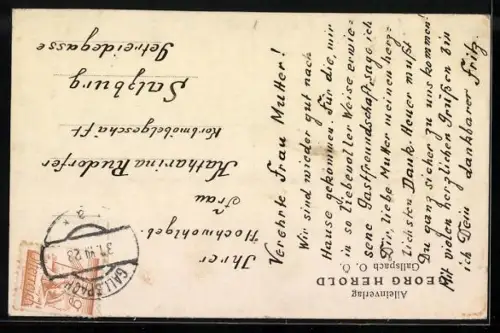 Verehrte Frau Mutter!
Wir sind wieder gut nach
Hause gekommen. Für die, mir
in so liebevoller Weise erwie-
sene Gastfreundschaft, sage ich
Dir, liebe Mutter meinen herz-
lichsten Dank. Heuer mußt
Du ganz sicher zu uns kommen.
Mit vielen herzlichen Grüßen bin
ich Dein dankbarer Fritz.
Ihrer
Hochwohlgeb.
Frau
Katharina Rudorfer
Korbmöbelgeschäft
Salzburg
Getreidegasse
GALLSPACH
Alleinverlag
GEORG HEROLD
Gallspach O. Ö.